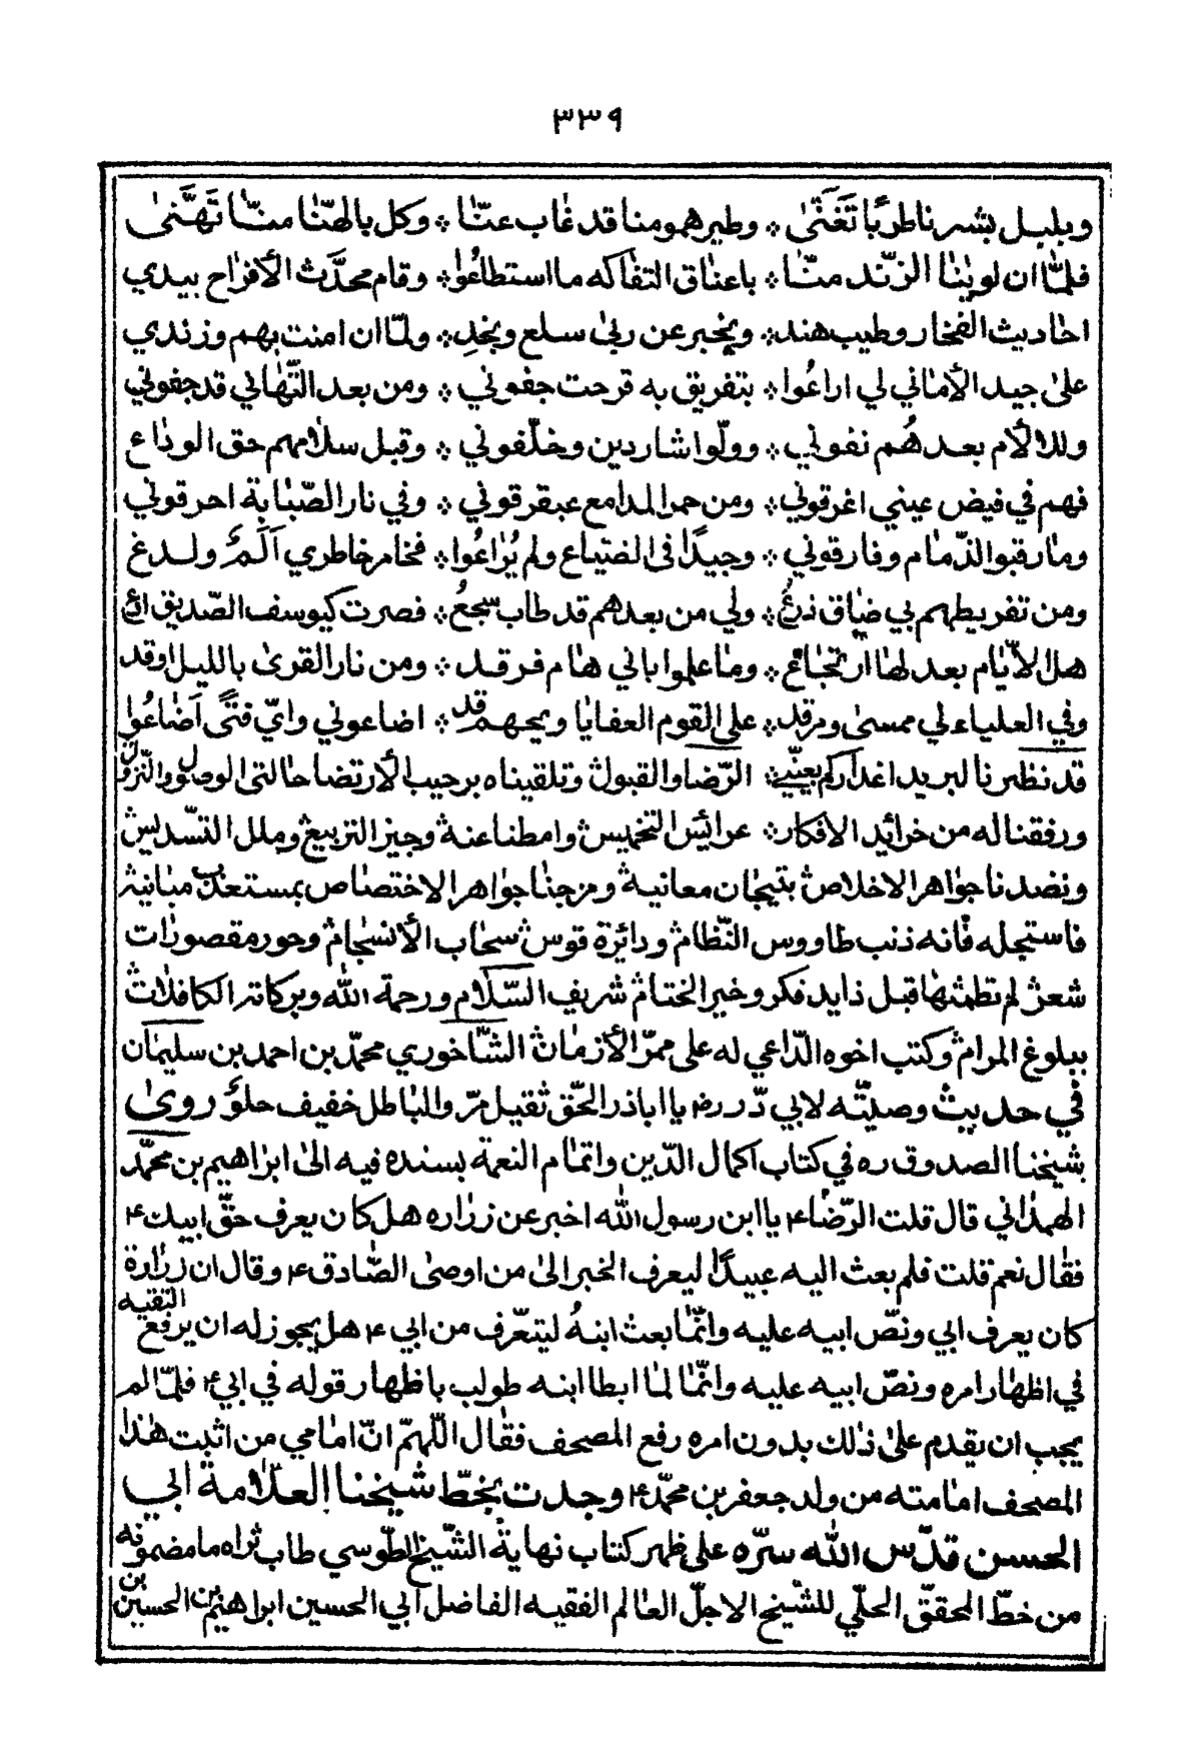 ٣٣٩
وبلبل بشرنا طربًا تَغَنّىٰ ❊ وطيرهمو منا قد غاب عنّا ❊ وكل بالهنا منّا تَهَنّىٰ
فلمّا ان لوينا الزّند منّا ❊ باعناق التفاكه ما استطاعُوا ❊ وقام محدّث الأفراح يبدي
احاديث الفخار وطيب هند ❊ ويخبر عن ربىٰ سلع ونجدِ ❊ ولمّا ان امنت بهم وزندي
علىٰ جيد الأماني لي اراعُوا ❊ بتفريق به قرحت جفوني ❊ ومن بعد التّهاني قد جفوني
وللالأم بعد هُم نفوني ❊ وولّوا شاردين وخلّفوني ❊ وقبل سلامهم حق الوداع
فهم في فيض عيني اغرقوني ❊ ومن حمر المدامع عبقرقوني ❊ وفي نار الصّبابة احرقوني
وما رقبوا الذّمام وفارقوني ❊ وجيدًا في الضّياع ولم يُراعُوا ❊ فخامر خاطري اَلَمٌ ولدغ
ومن تفريطهم بي ضاق ذرعٌ ❊ ولي من بعدهم قد طاب سجعُ ❊ فصرت كيوسف الصّديق ادعُ
هل الأيّام بعد لها ارتجاعُ ❊ وما علموا باني هام فرقد ❊ ومن نار القرىٰ بالليل اوقد
وفي العلياء لي ممسىٰ ومرقد ❊ على القوم العفايا ويحهم قد ❊ اضاعوني وايّ فتًى اَضاعُوا
قد نظرنا لبريد اغدارکم بعينيّ الرّضا والقبول وتلقيناه برحيب الأرتضا حالتى الوصول والنّزول
ورفقنا له من خرائد الافكار ❊ عرائس التخميس وامطنا عنه وجيز التربيع وملل التسديس
ونضدنا جواهر الاخلاص بتيجان معانيه ومزجنا جواهر الاختصاص بمستعذب مبانيه
فاستجله فانه ذنب طاووس النّظام ودائرة قوس سحاب الأنسجام وحور مقصورات
شعر لم تطمثها قبل ذا يد فكر وخير الختام شريف السّلام ورحمة الله وبركاته الكافلات
ببلوغ المرام وكتب اخوه الدّاعي له على ممرّ الأزمان الشّاخوري محمّد بن احمد بن سليمان
في حديث وصيتّه لابي ذّر رض يا اباذر الحّق ثقيل مرّ والباطل خفيف حلوٌ روىٰ
شيخنا الصدوق ره في كتاب اكمال الدّين واتمام النعمة بسنده فيه الىٰ ابراهيم بن محمّد
الهمداني قال قلت الرّضاء ع يا ابن رسول الله اخبر عن زراره هل كان يعرف حقّ ابيك ع
فقال نعم قلت فلم بعث اليه عبيدًا ليعرف الخبر الىٰ من اوصىٰ الصّادق ع وقال ان زرارة
كان يعرف ابي ونصّ ابيه عليه وانّما بعث ابنهُ ليتعّرف من ابي ع هل يجوز له ان يرفع التقيه
في اظهار امره ونصّ ابيه عليه وانّما لما ابطا ابنه طولب باظهار قوله في ابي ع فلمّا لم
يجب ان يقدم علىٰ ذلك بدون امره رفع المصحف فقال اللّهمّ انّ امامي من اثبت هٰذا
المصحف امامته من ولد جعفر بن محمّد ع وجدت بخطّ شيخنا العلّامة ابي
الحسن قدّس الله سرّه على ظهر كتاب نهاية الشّيخ الطّوسي طاب ثراه ما مضمونه
من خطّ المحققّ الحلّي للشّيخ الاجلّ العالم الفقيه الفاضل ابي الحسين ابراهيم بن الحسين بن